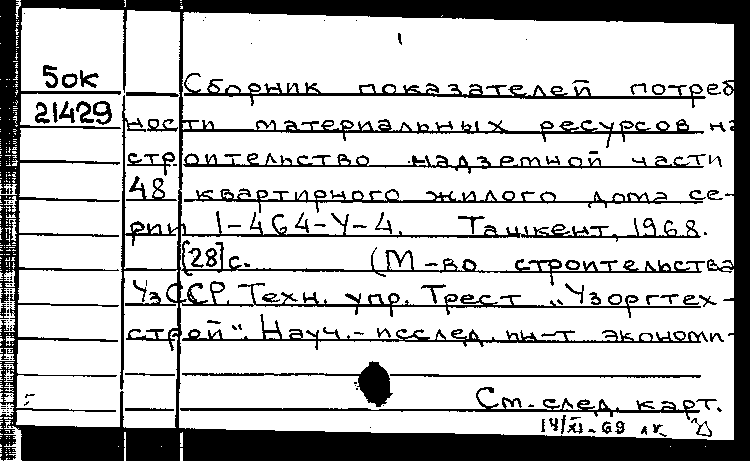 5ок
21429
Сборник показателей потреб
ности материальных ресурсов на
строительство надземной части
48 квартирного жилого дома се-
рии 1-464-У-4. Ташкент, 1968.
[28]с. (М-во строительства
УзССР. Техн. упр. Трест „Узоргтех-
строй". Науч.-исслед. ин-т экономи-
См. след. карт.
14/XI-69